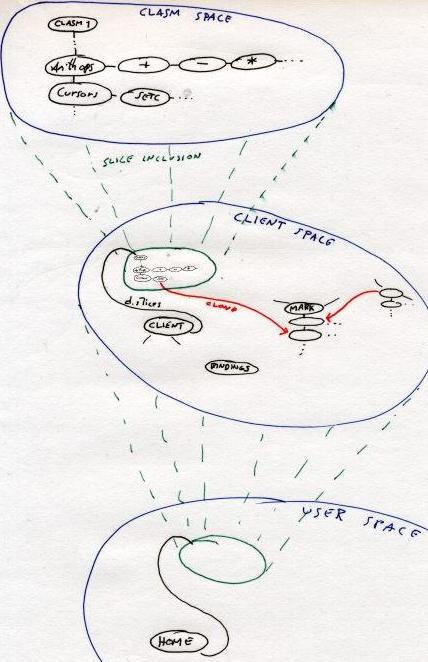 CLASM SPACE
CLASM 1
Arithops + - *
Cursors SETC
SLICE INCLUSION
CLIENT SPACE
d.slices
CLONE
MARK
CLIENT
BINDINGS
USER SPACE
HOME